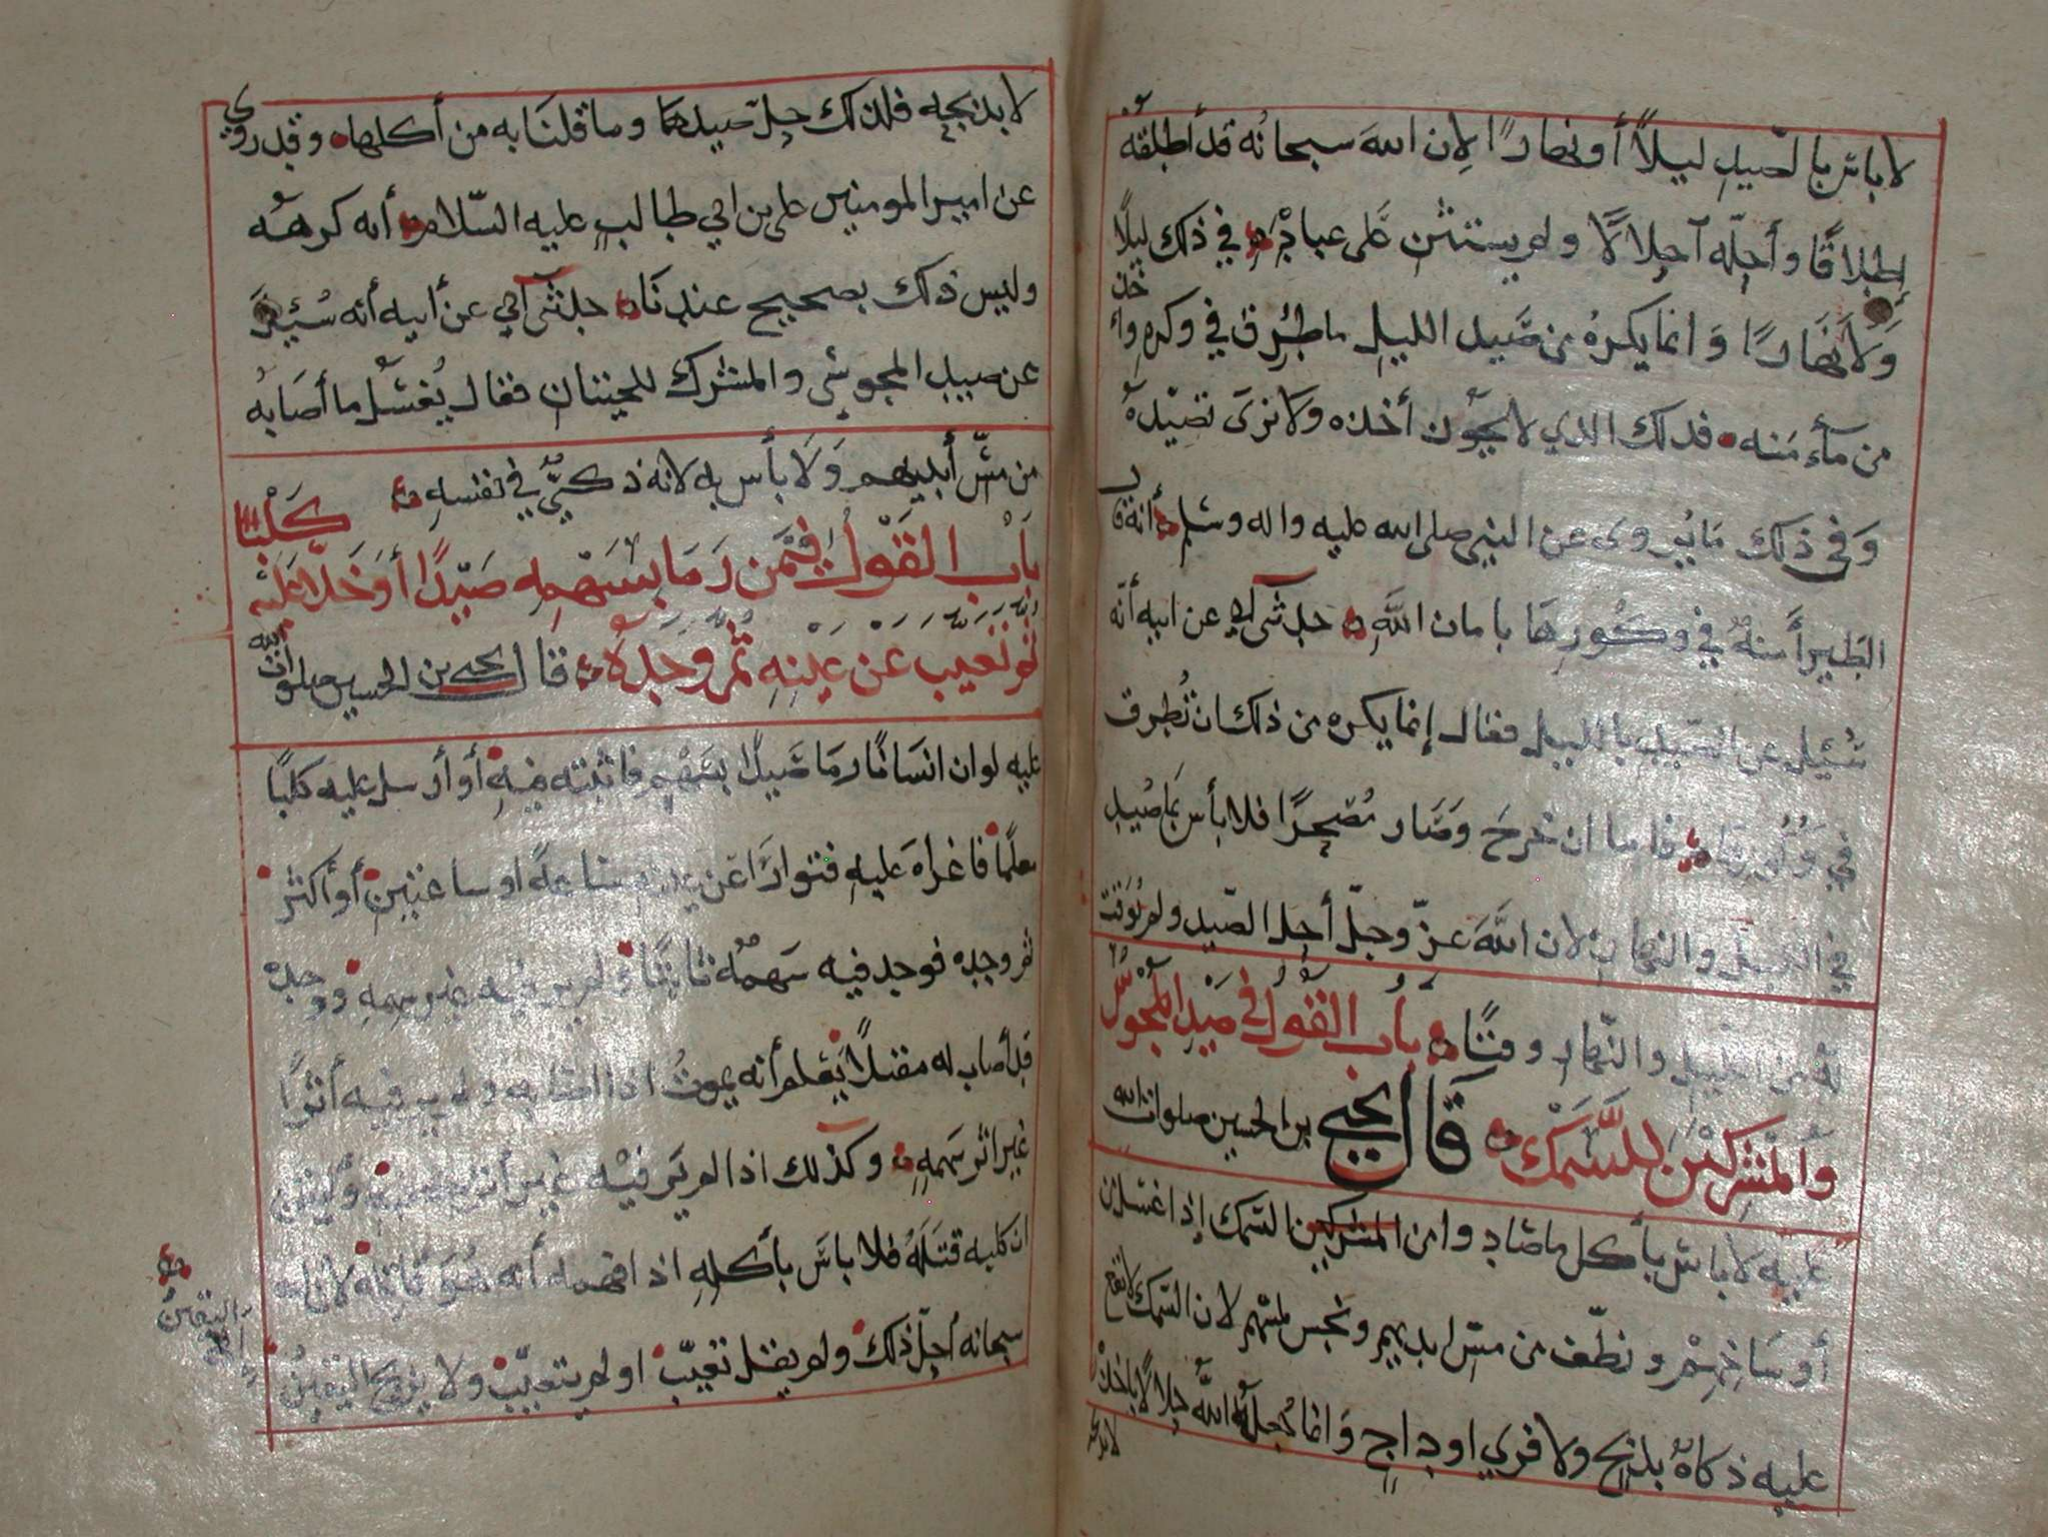 لا باس بالصيد ليلاً أو نهارًا لان الله سبحانه قد أطلقه
إطلاقًا وأحله آحلالاً ولم يستثن على عباده في ذلك ليلًا
ولا نهارًا وانما يكره من صيد الليل ما طرق في وكره وأخذ
من مآمنه فذلك الذي لا يجوز أخذه ولا نرى تصيده
وفي ذلك ما يروى عن النبي صلى الله عليه واله وسلم أنه قال
الطير أمنة في وكورها بامان الله حدثني أبي عن ابيه أنه
سُئيل عن الصيد بالليل فقال إنما يكره من ذلك ان تُطرق
في وكورها فاما ان خرج وصار مُصحرًا فلا بأس بما صيد
في الليل والنهار لان الله عز وجل أحل الصيد ولم يوقت
له من الليل والنهار وقتًا باب القول في صيد المجوس
والمشركين للسمك قال يحيى بن الحسين صلوات الله
عليه لا باس بأكل ما صادوا من المشركين السمك إذا غسل من
أوساخهم ونظف من مس ايديهم ونجس لمسهم لان السمك لا تقع
عليه ذكاة بذبح ولا فري اوداج وانما جعله الله حلالًا باخذه
لا بذبحه
لا بذبحه فلذلك حل صيدهما وما قلنا به من أكلها وقد روي
عن امير المومنين علي بن ابي طالب عليه السلام أنه كرهه
وليس ذلك بصحيح عندنا حدثني أبي عن أبيه أنه سُئيل
عن صيد المجوسي والمشرك للحيتان فقال يُغسل ما أصابه
من مس أيديهم ولا بأس به لانه ذكي في نفسه
باب القول فيمن رما بسهمه صيدًا أو خلا عليه كلبًا
ثم تغيب عن عينه ثم وجده قال يحيى بن الحسين صلوات الله
عليه لو ان انسانًا رما صيدًا بسهم فاثبته فيه أو أرسل عليه كلبًا
معلمًا فاغراه عليه فتوارا عن عينه ساعة او ساعتين أو أكثر
ثم وجده فوجد فيه سهمه ثابتًا ولم ير فيه غير سهمه ووجده
قد أصاب له مقتلاً يعلم أنه يموت اذا اصابه ولم ير فيه أثرًا
غير اثر سهمه وكذلك اذا لم ير فيه غير أثر كلبه وأيقن
ان كلبه قتله فلا باس بأكله اذا فهمه أنه هو فاته لان الله
سبحانه أحل ذلك ولم يقل تغيب او لم يتغيب ولا يزيح اليقين